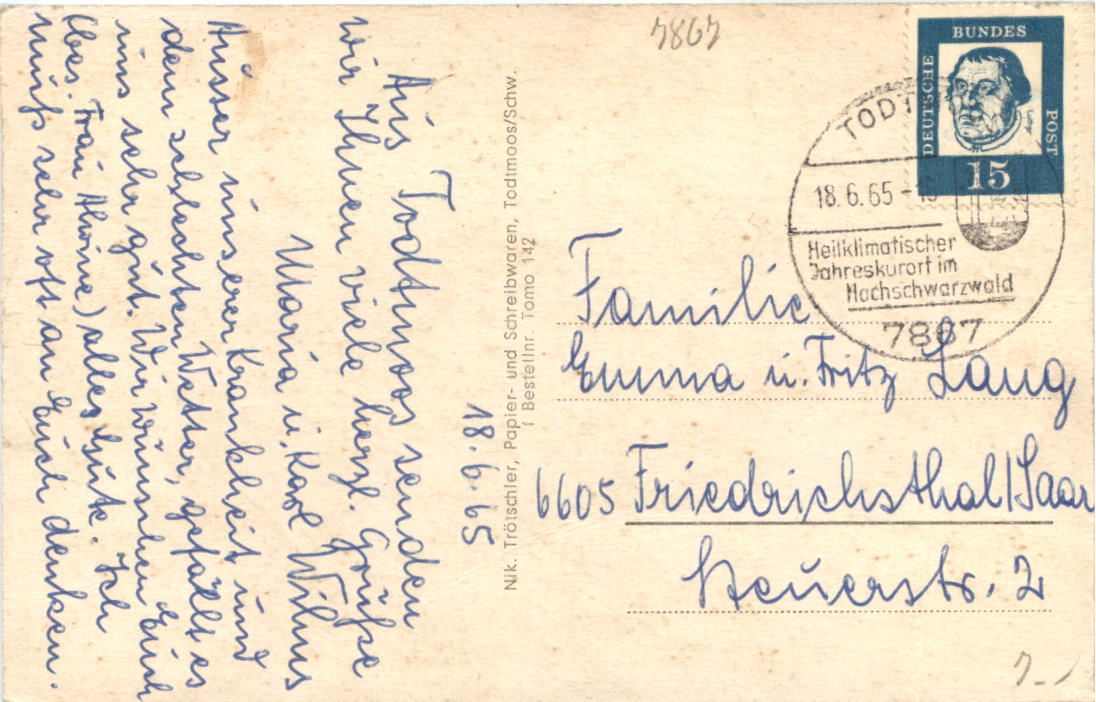 18.6.65
Aus Todtmoos senden
wir Ihnen viele herzl. Grüße
Maria u. Karl Wilms
Ausser unserer Krankheit und
dem schlechten Wetter, gefällt es
uns sehr gut. Wir wünschen Euch
(bes. Frau Alwine) alles Gute. Ich
muß sehr oft an Euch denken.
Nik. Trötschler, Papier- und Schreibwaren, Todtmoos/Schw.
Bestellnr. Tomo 142
7867
DEUTSCHE
BUNDES
POST
15
18.6.65
Heilklimatischer
Jahreskurort im
Hochschwarzwald
7867
Familie
Emma u. Fritz Lang
6605 Friedrichsthal/Saar
Steuerstr. 2